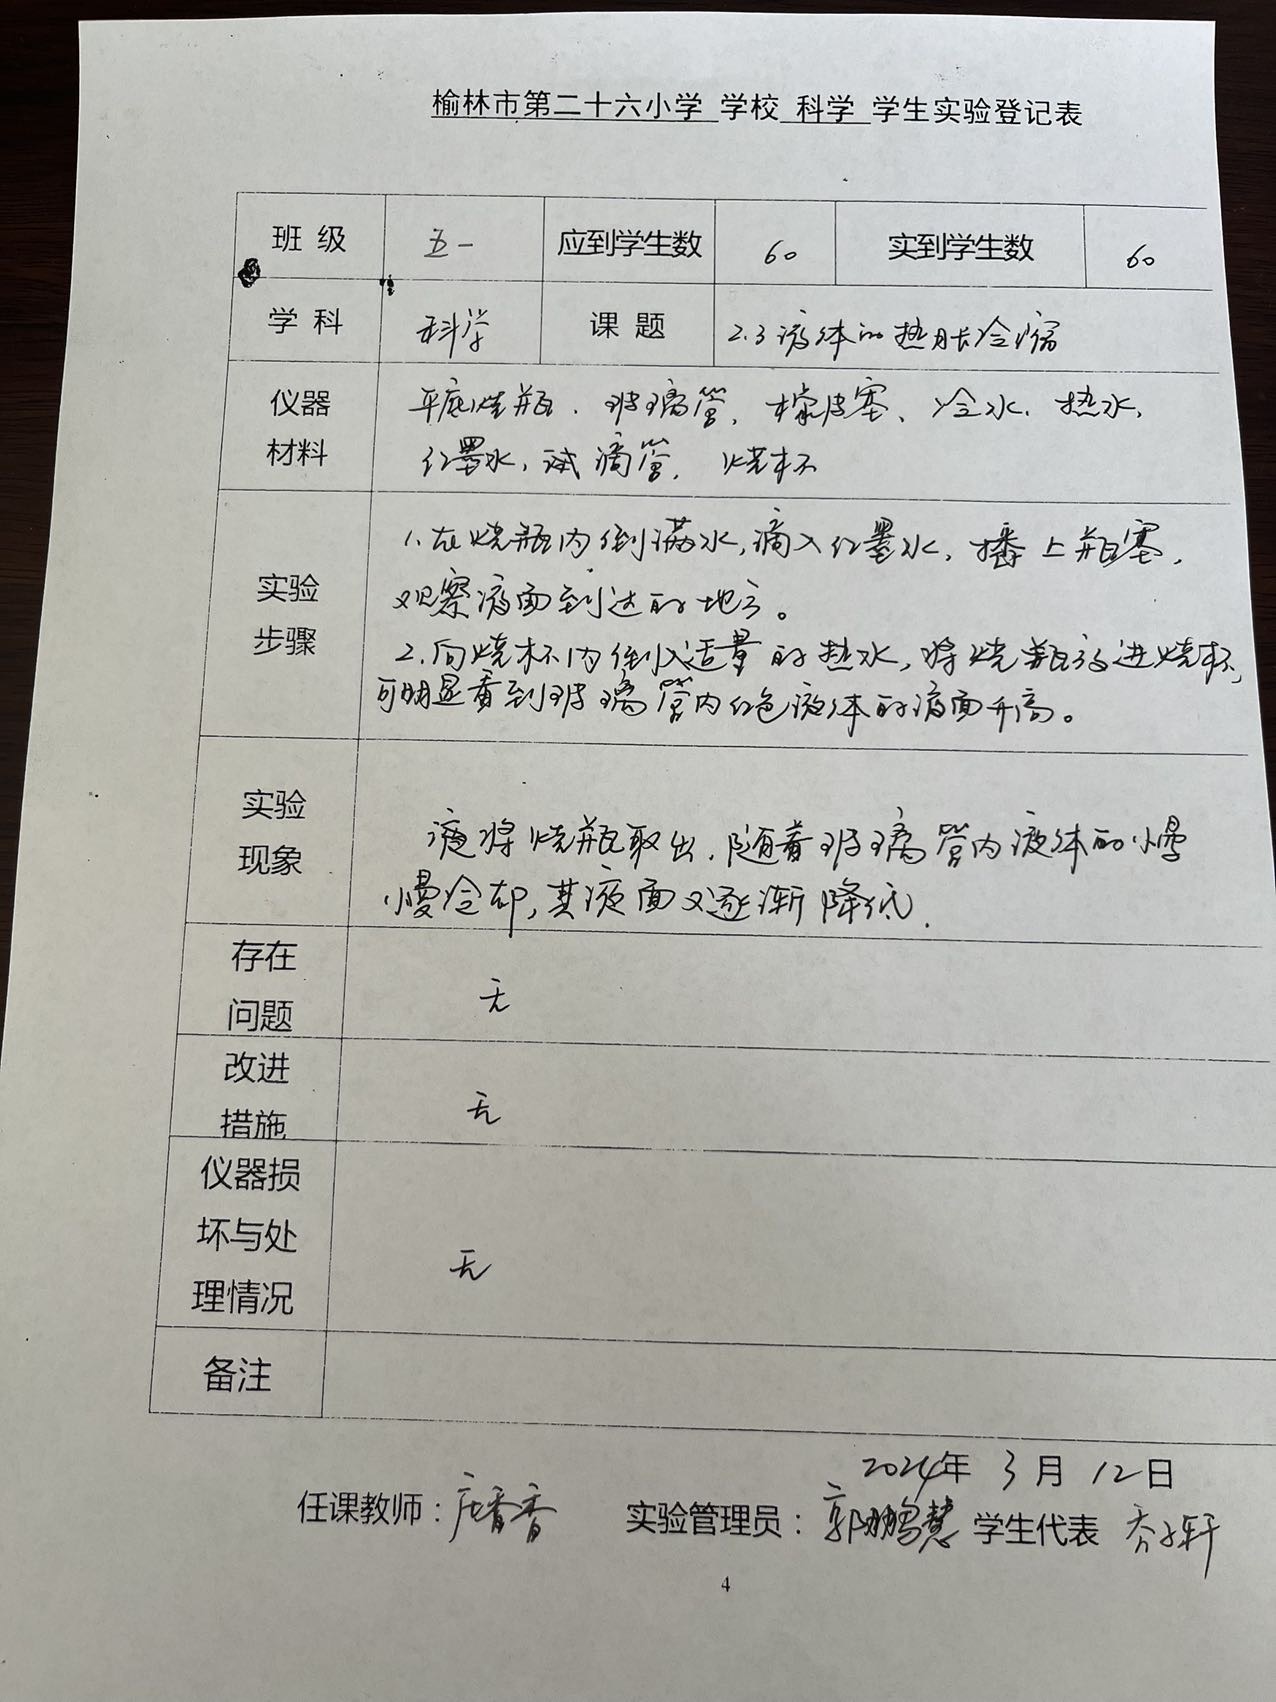 榆林市第二十六小学 学校 科学 学生实验登记表
班 级 五一 应到学生数 60 实到学生数 60
学 科 科学 课 题 2.3液体的热胀冷缩
仪器 平底烧瓶、玻璃管、橡皮塞、冷水、热水、
材料 红墨水,试滴管、烧杯
1.在烧瓶内倒满水,滴入红墨水,播上瓶塞,
实验 观察液面到达的地方。
步骤 2.向烧杯内倒入适量的热水,将烧瓶放进烧杯,
可明显看到玻璃管内红色液体的液面升高。
实验 将烧瓶取出,随着玻璃管内液体的慢
现象 慢冷却,其液面又逐渐降低.
存在
问题 无
改进
措施 无
仪器损
坏与处 无
理情况
备注
2024年 3月 12日
任课教师: 香香 实验管理员: 郭鹏慧 学生代表 乔子轩
4